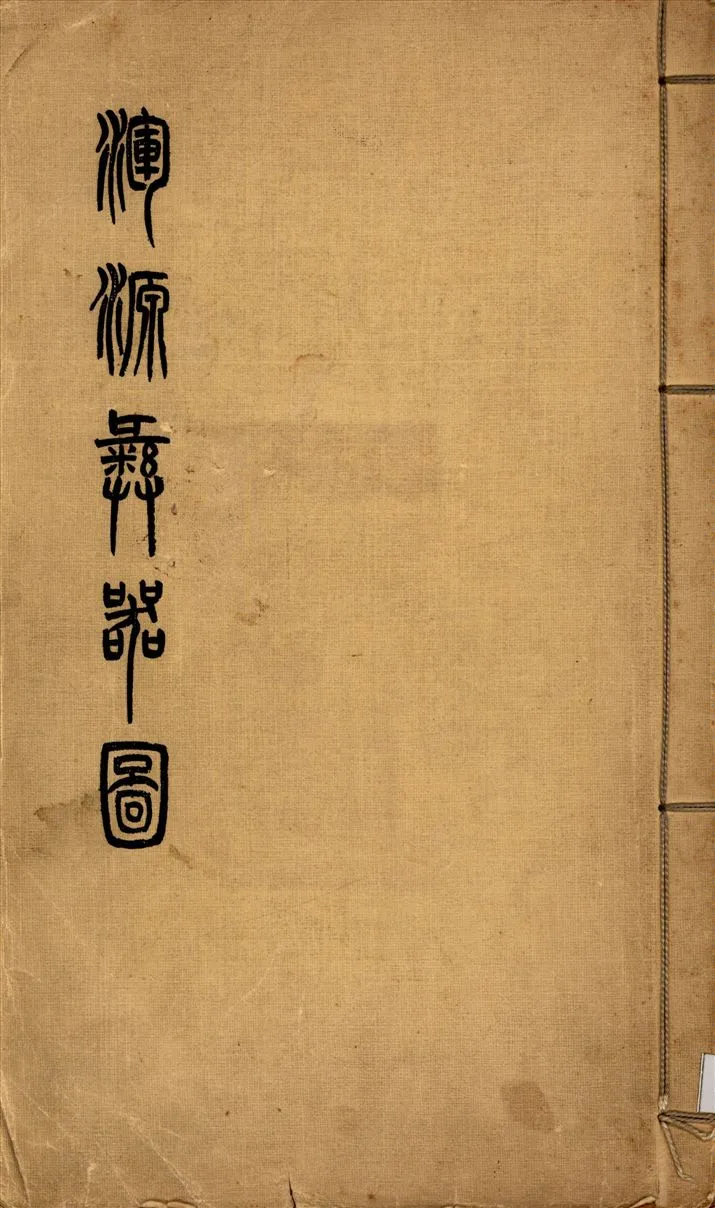 渾源彝器圖